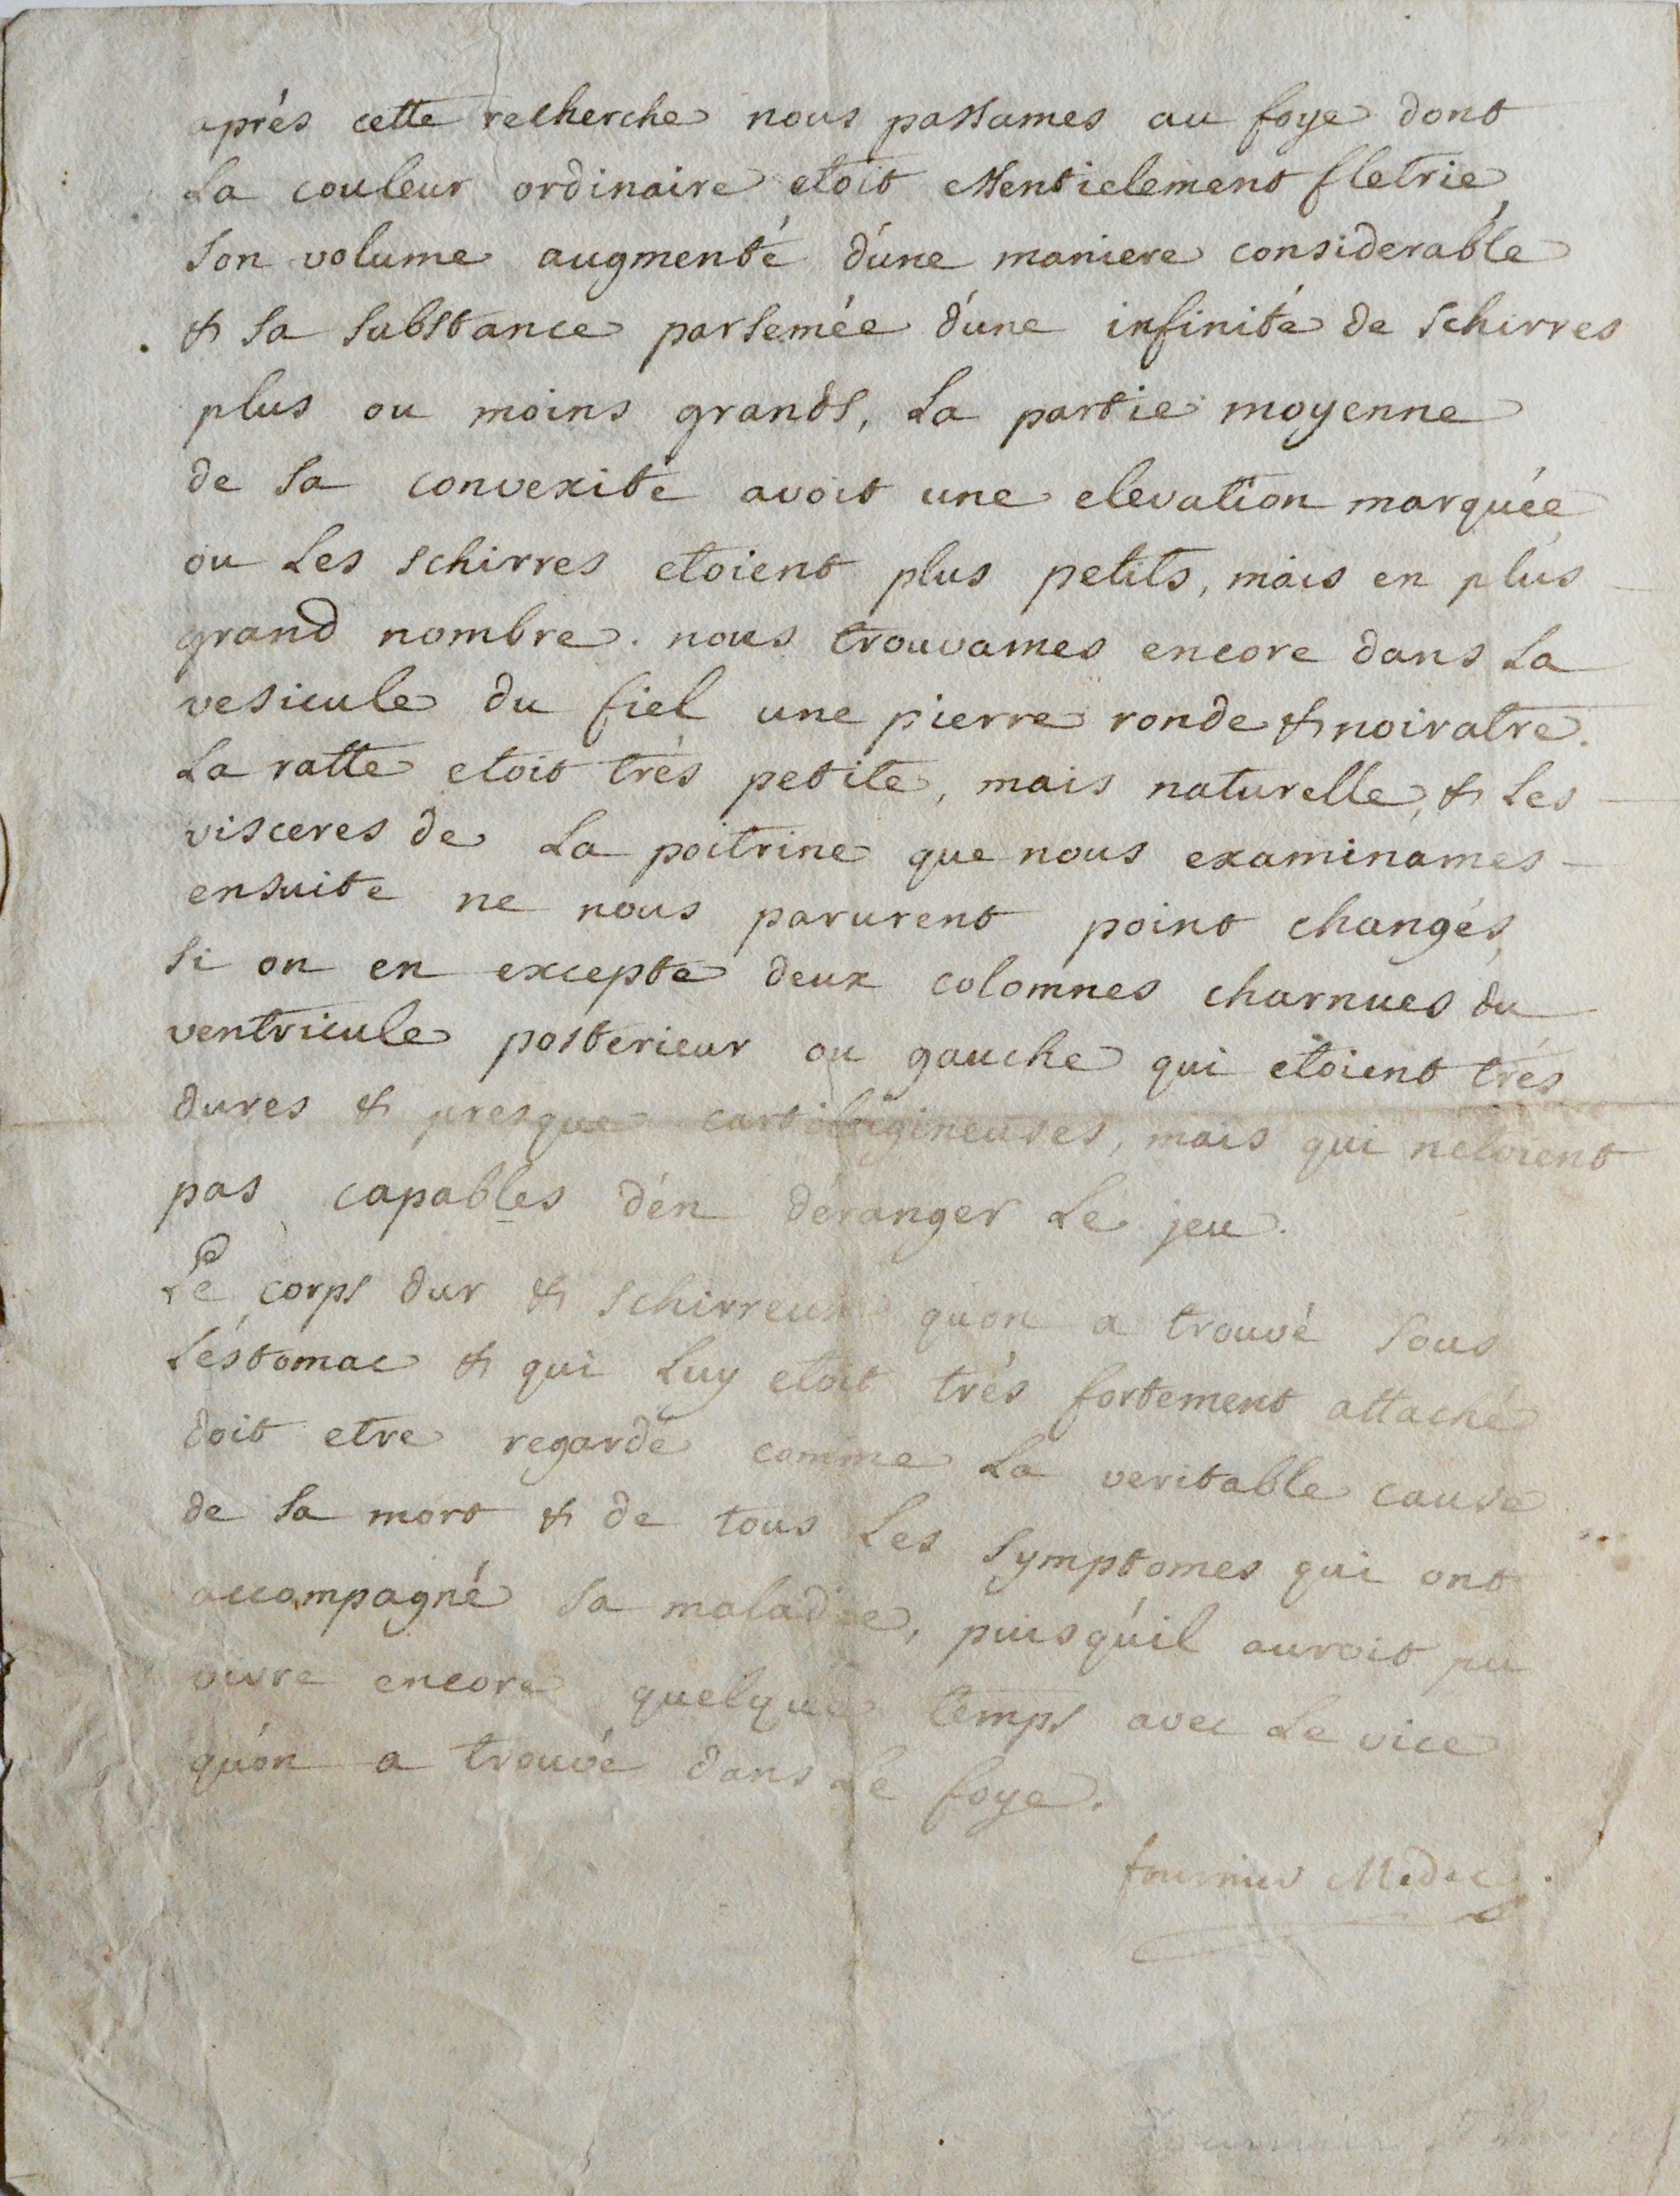 après cette recherche nous passames au foye dont
La couleur ordinaire etoit essentielement fletrie,
son volume augmenté d'une maniere considerable
& sa substance parsemée d'une infinité de schirres
plus ou moins grands, La partie moyenne
de sa convexité avoit une elevation marquée,
ou Les schirres etoient plus petits, mais en plus
grand nombre. nous trouvames encore dans La
vesicule du fiel une pierre ronde & noiratre.
La ratte etoit très petite, mais naturelle, & Les
visceres de La poitrine que nous examinames
ensuite ne nous parurent point changés,
si on en excepte deux colomnes charnues du
ventricule posterieur ou gauche qui etoient très
dures & presque cartilagineuses, mais qui netoient
pas capables d'en déranger Le jeu.
Le corps dur & schirreux qu'on a trouvé sous
L'estomac & qui Luy etoit très fortement attaché
doit etre regardé comme La veritable cause
de sa mort & de tous Les symptomes qui ont
accompagné sa maladie, puisqu'il auroit pu
vivre encore quelque temps avec Le vice
qu'on a trouvé dans Le foye.
fournier Medec